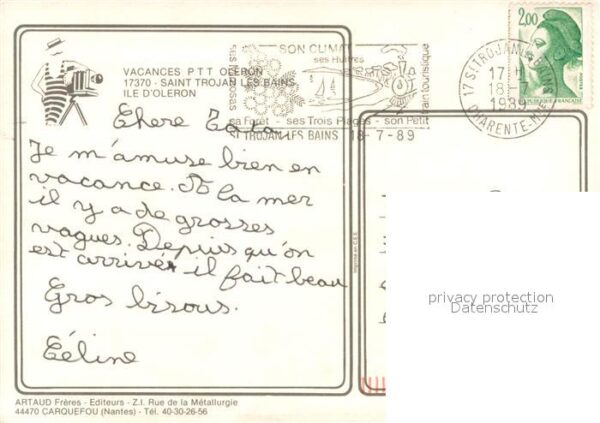 VACANCES P T T OLERON
17370 - SAINT TROJAN LES BAINS
ILE D'OLERON
SON CLIMAT
ses Huîtres
ses Mimosas
sa Forêt - ses Trois Plages - son Petit
train touristique
ST TROJAN LES BAINS 18-7-89
17 ST TROJAN LES BAINS
17 H
18-7
1989
CHARENTE-M
2,00
Chere Tata
Je m'amuse bien en
vacance. A la mer
il y a de grosses
vagues. Depuis qu'on
est arrivér il fait beau
Gros bisous.
Céline
Imprimé en C.E.E.
privacy protection
Datenschutz
ARTAUD Frères - Editeurs - Z.I. Rue de la Métallurgie
44470 CARQUEFOU (Nantes) - Tél. 40-30-26-56